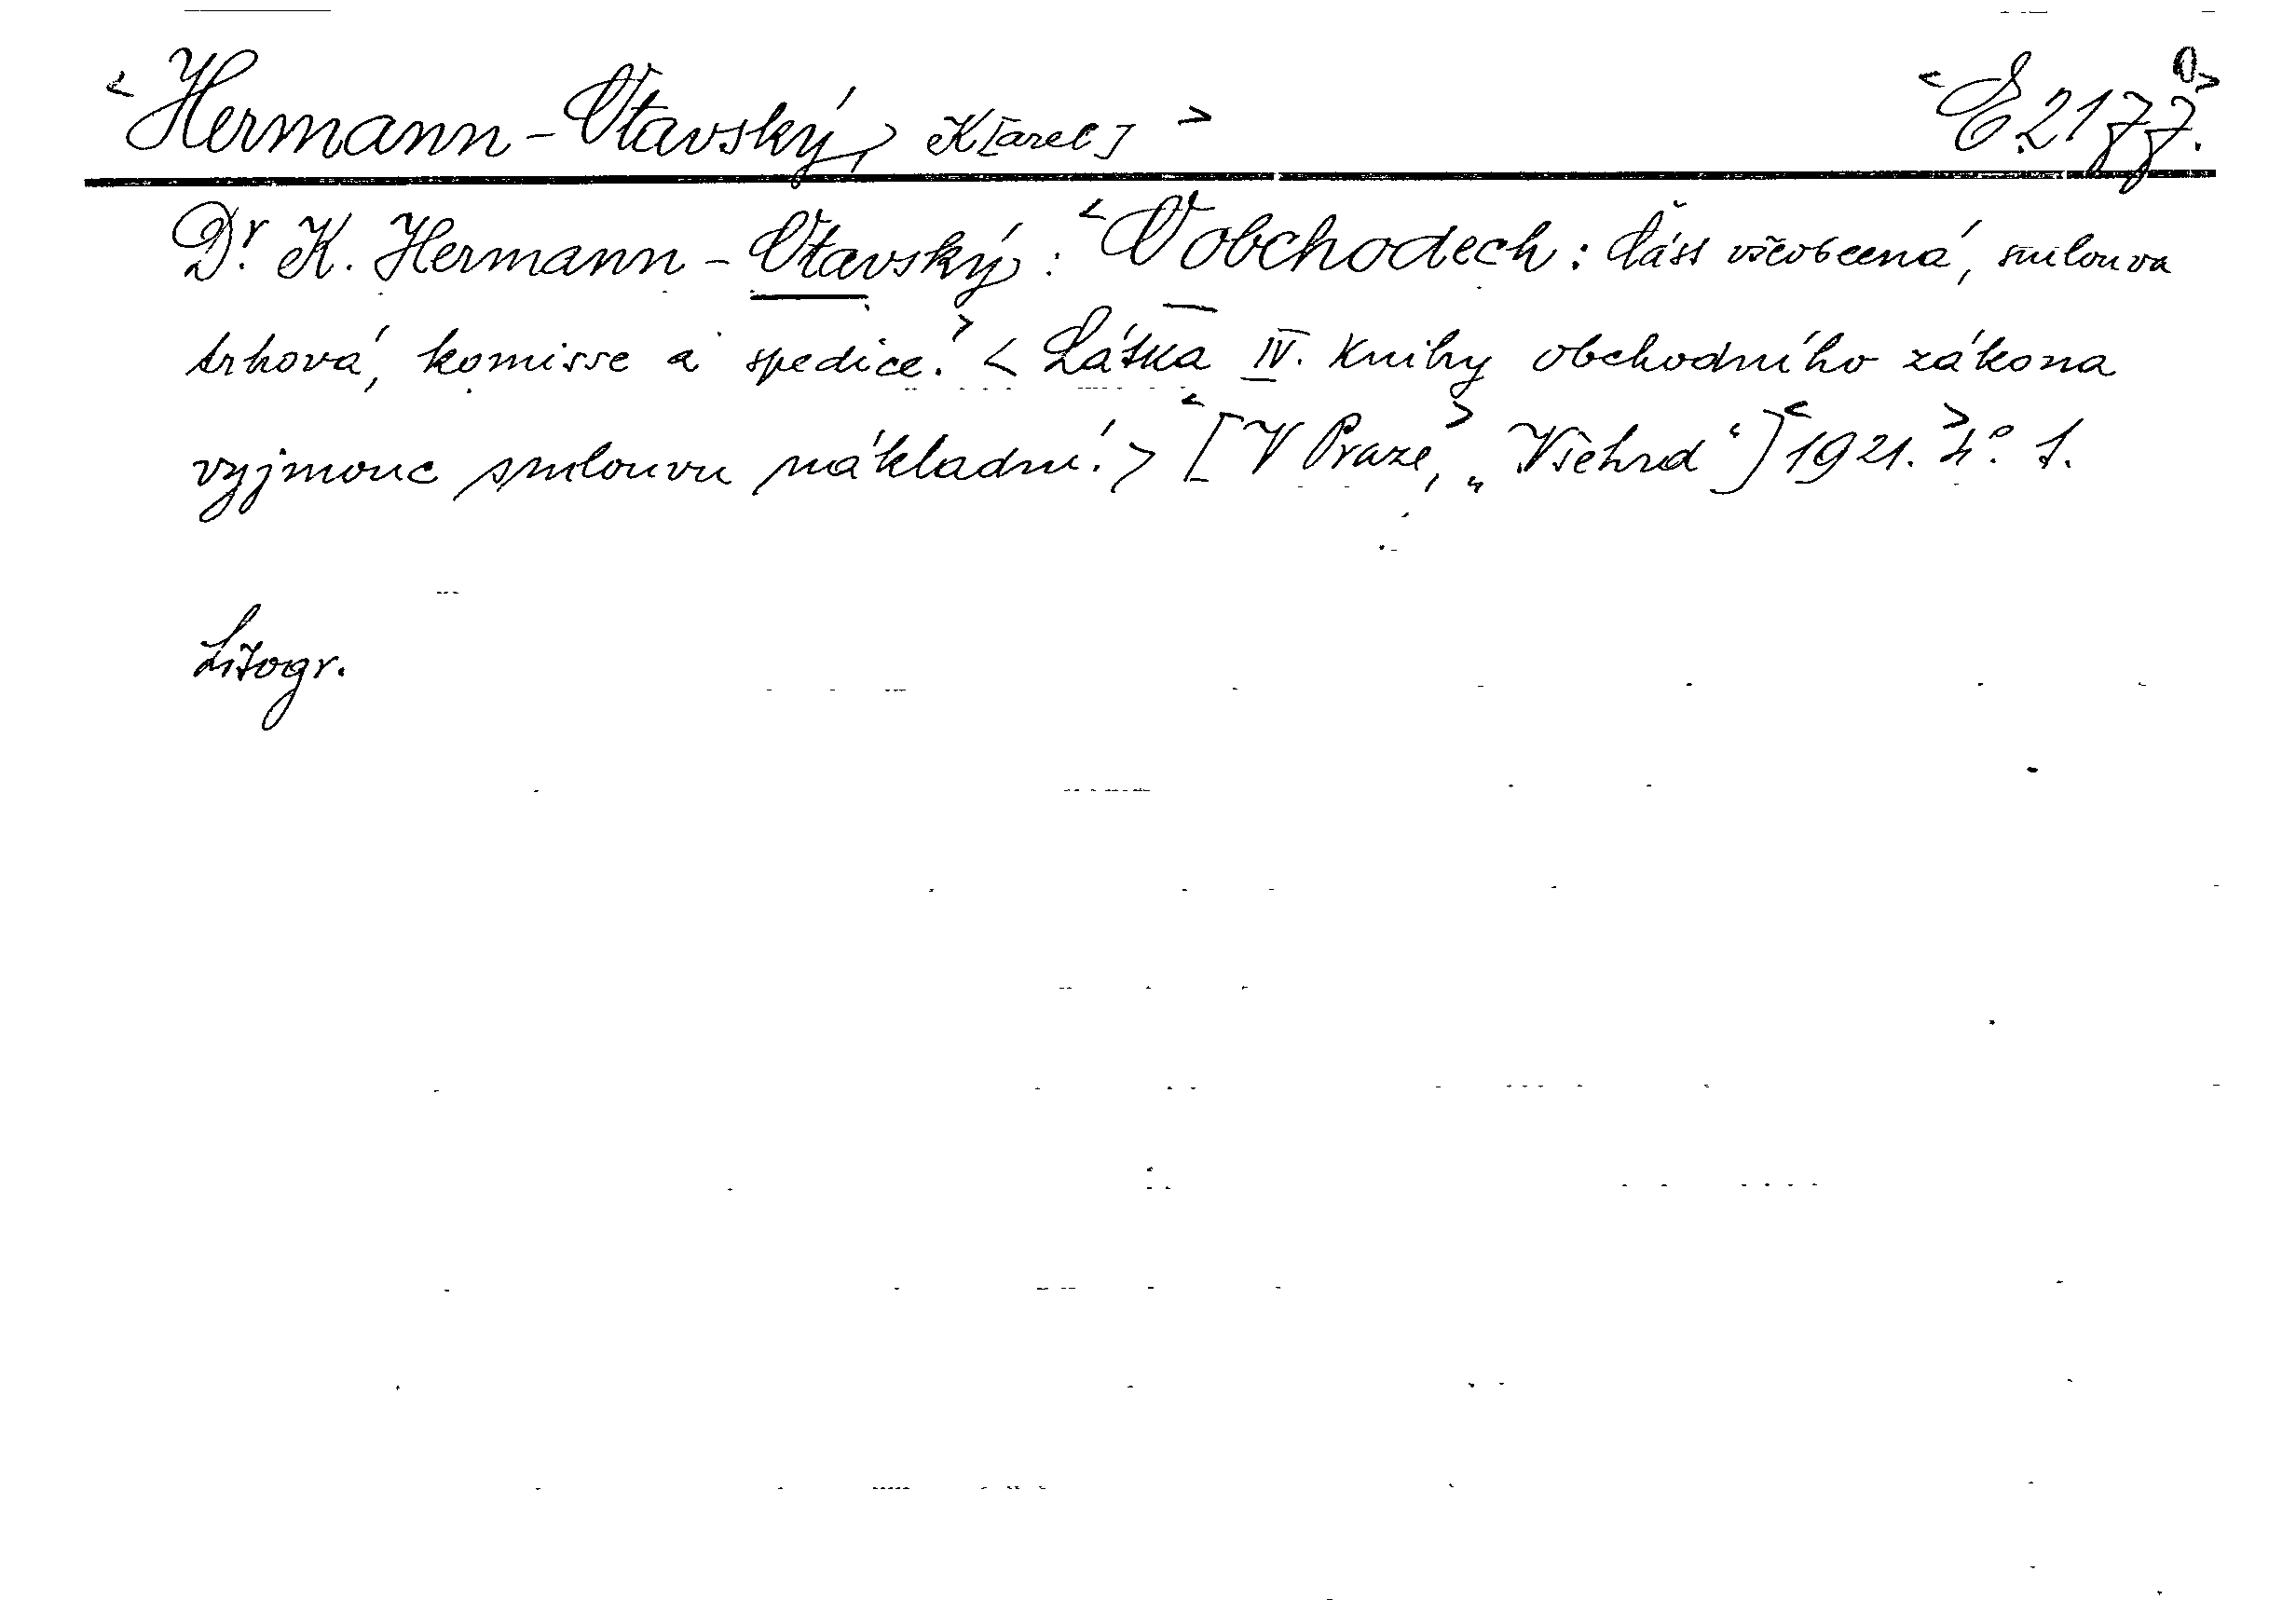 <Hermann-Otavský, K[arel]> <E 2177.>
Dr. K. Hermann-Otavský: <O obchodech: část všeobecná, smlouva
trhová, komisse a spedice.> <Látka IV. knihy obchodního zákona
vyjmouc smlouvu nákladní.> [<V Praze,> „Všehrd“] <1921.> 4°. 1.
Litogr.